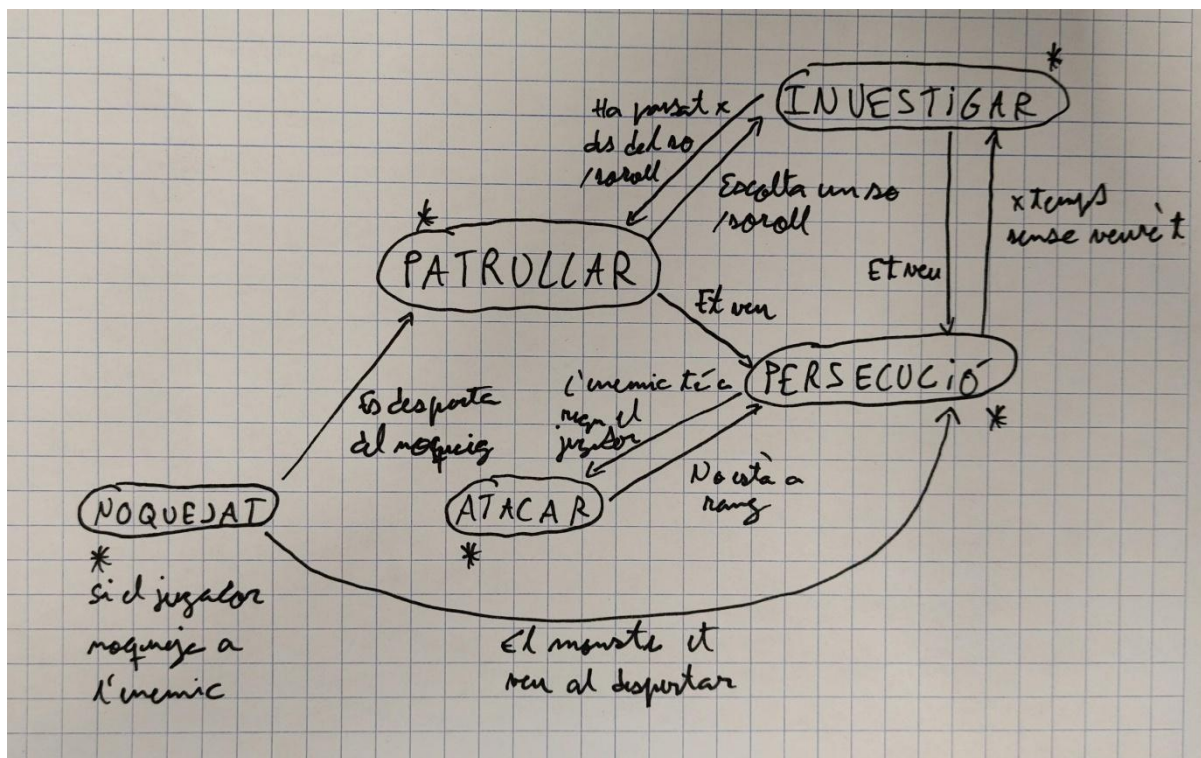 *
INVESTIGAR
Ha passat x
des del so
/soroll
Escolta un so
/soroll
x temps
sense veure't
*
PATRULLAR
Et veu
Et veu
PERSECUCIÓ
*
L'enemic té a
rang el
jugador
Es desperta
del noqueig
No està a
rang
NOQUEJAT
ATACAR
*
*
Si el jugador
noqueja a
l'enemic
El monstre et
veu al despertar